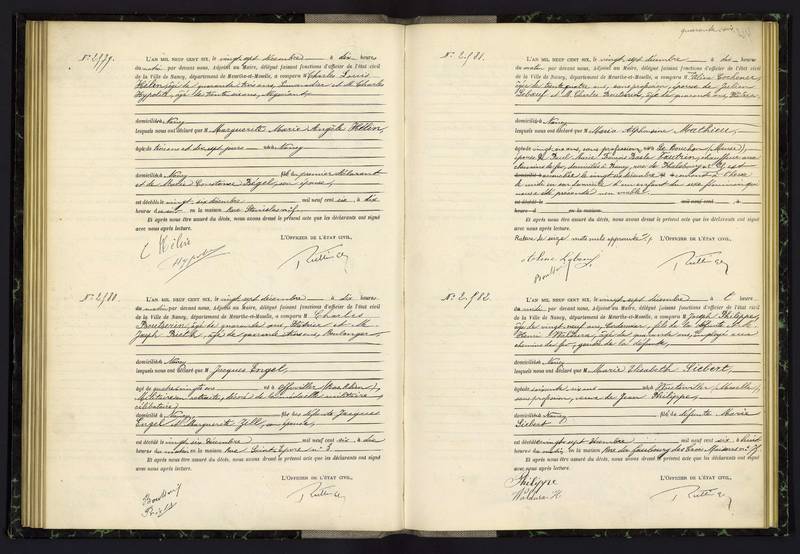 quarante-trois
N° 2979.
L'AN MIL NEUF CENT SIX, le vingt sept décembre à dix heures
du matin par devant nous, Adjoint au Maire, délégué faisant fonctions d'officier de l'état civil
de la Ville de Nancy, département de Meurthe-et-Moselle, a comparu M Charles Louis
Hélin, âgé de quarante trois ans, et M Charles
Hypolith, âgé de trente
domicilié à Nancy
lesquels nous ont déclaré que M Marguerite Marie Angèle Hélin,
âgée de trois ans et dix sept jours née à Nancy
domicilié à Nancy fille du premier déclarant
et de Marie Constance Bégel, son épouse,
est décédée le vingt six décembre mil neuf cent six à dix
heures du soir en la maison rue Stanislas
Et après nous être assuré du décès, nous avons dressé le présent acte que les déclarants ont signé
avec nous après lecture.
L'OFFICIER DE L'ÉTAT CIVIL,
C Hélin
Hypolith
N° 2980.
L'AN MIL NEUF CENT SIX, le vingt sept décembre à dix heures
du matin par devant nous, Adjoint au Maire, délégué faisant fonctions d'officier de l'état civil
de la Ville de Nancy, département de Meurthe-et-Moselle, a comparu M Charles
âgé de quarante ans, et M
Joseph âgé de quarante ans, Boulanger
domiciliés à Nancy
lesquels nous ont déclaré que M Jacques Engel,
âgé de quatre vingt ans né à Offwiller (Bas Rhin),
Militaire en retraite, décoré de la médaille militaire
célibataire
domicilié à Nancy fils des défunts Jacques
Engel et Marguerite Zell, son épouse,
est décédé le vingt six décembre mil neuf cent six à dix
heures du matin en la maison Rue Saint Epvre n° 3
Et après nous être assuré du décès, nous avons dressé le présent acte que les déclarants ont signé
avec nous après lecture.
L'OFFICIER DE L'ÉTAT CIVIL,
N° 2981.
L'AN MIL NEUF CENT SIX, le vingt sept décembre à dix heures
du matin par devant nous, Adjoint au Maire, délégué faisant fonctions d'officier de l'état civil
de la Ville de Nancy, département de Meurthe-et-Moselle, a comparu
âgée de trente quatre ans, sans profession, épouse de Julien
et M. Charles âgé de quarante ans,
domiciliés à Nancy
lesquels nous ont déclaré que M Maria Alphonsine Mathieu,
âgée de vingt six ans, sans profession née à Le Bouchon (Meuse),
épouse de Paul Marie François Vautrin, chauffeur aux
chemins de fer, domiciliée à Nancy, rue de Phalsbourg n° 27 est
accouchée le vingt six décembre à
de midi en son domicile d'un enfant du sexe féminin qui
nous été présenté non viable.
est décédé le mil neuf cent à
heure à en la maison
Et après nous être assuré du décès, nous avons dressé le présent acte que les déclarants ont signé
avec nous après lecture.
Rature de seize mots nuls approuvée. L'OFFICIER DE L'ÉTAT CIVIL,
N° 2982.
L'AN MIL NEUF CENT SIX, le vingt sept décembre à heure
du midi par devant nous, Adjoint au Maire, délégué faisant fonctions d'officier de l'état civil
de la Ville de Nancy, département de Meurthe-et-Moselle, a comparu M Joseph Philippe,
âgé de vingt neuf ans, Cordonnier, fils de la défunte et M.
Henri âgé de quarante ans, Employé aux
chemins de fer, gendre de la défunte,
domiciliés à Nancy
lesquels nous ont déclaré que M Marie Elisabeth Siebert,
âgée de soixante six ans née à (Moselle),
sans profession, veuve de Jean Philippe,
domiciliée à Nancy fille de défunte Marie
Siebert
est décédée vingt sept décembre mil neuf cent six à huit
heures du matin en la maison Rue du faubourg des Trois Maisons n° 75
Et après nous être assuré du décès, nous avons dressé le présent acte que les déclarants ont signé
avec nous après lecture.
L'OFFICIER DE L'ÉTAT CIVIL,
Philippe